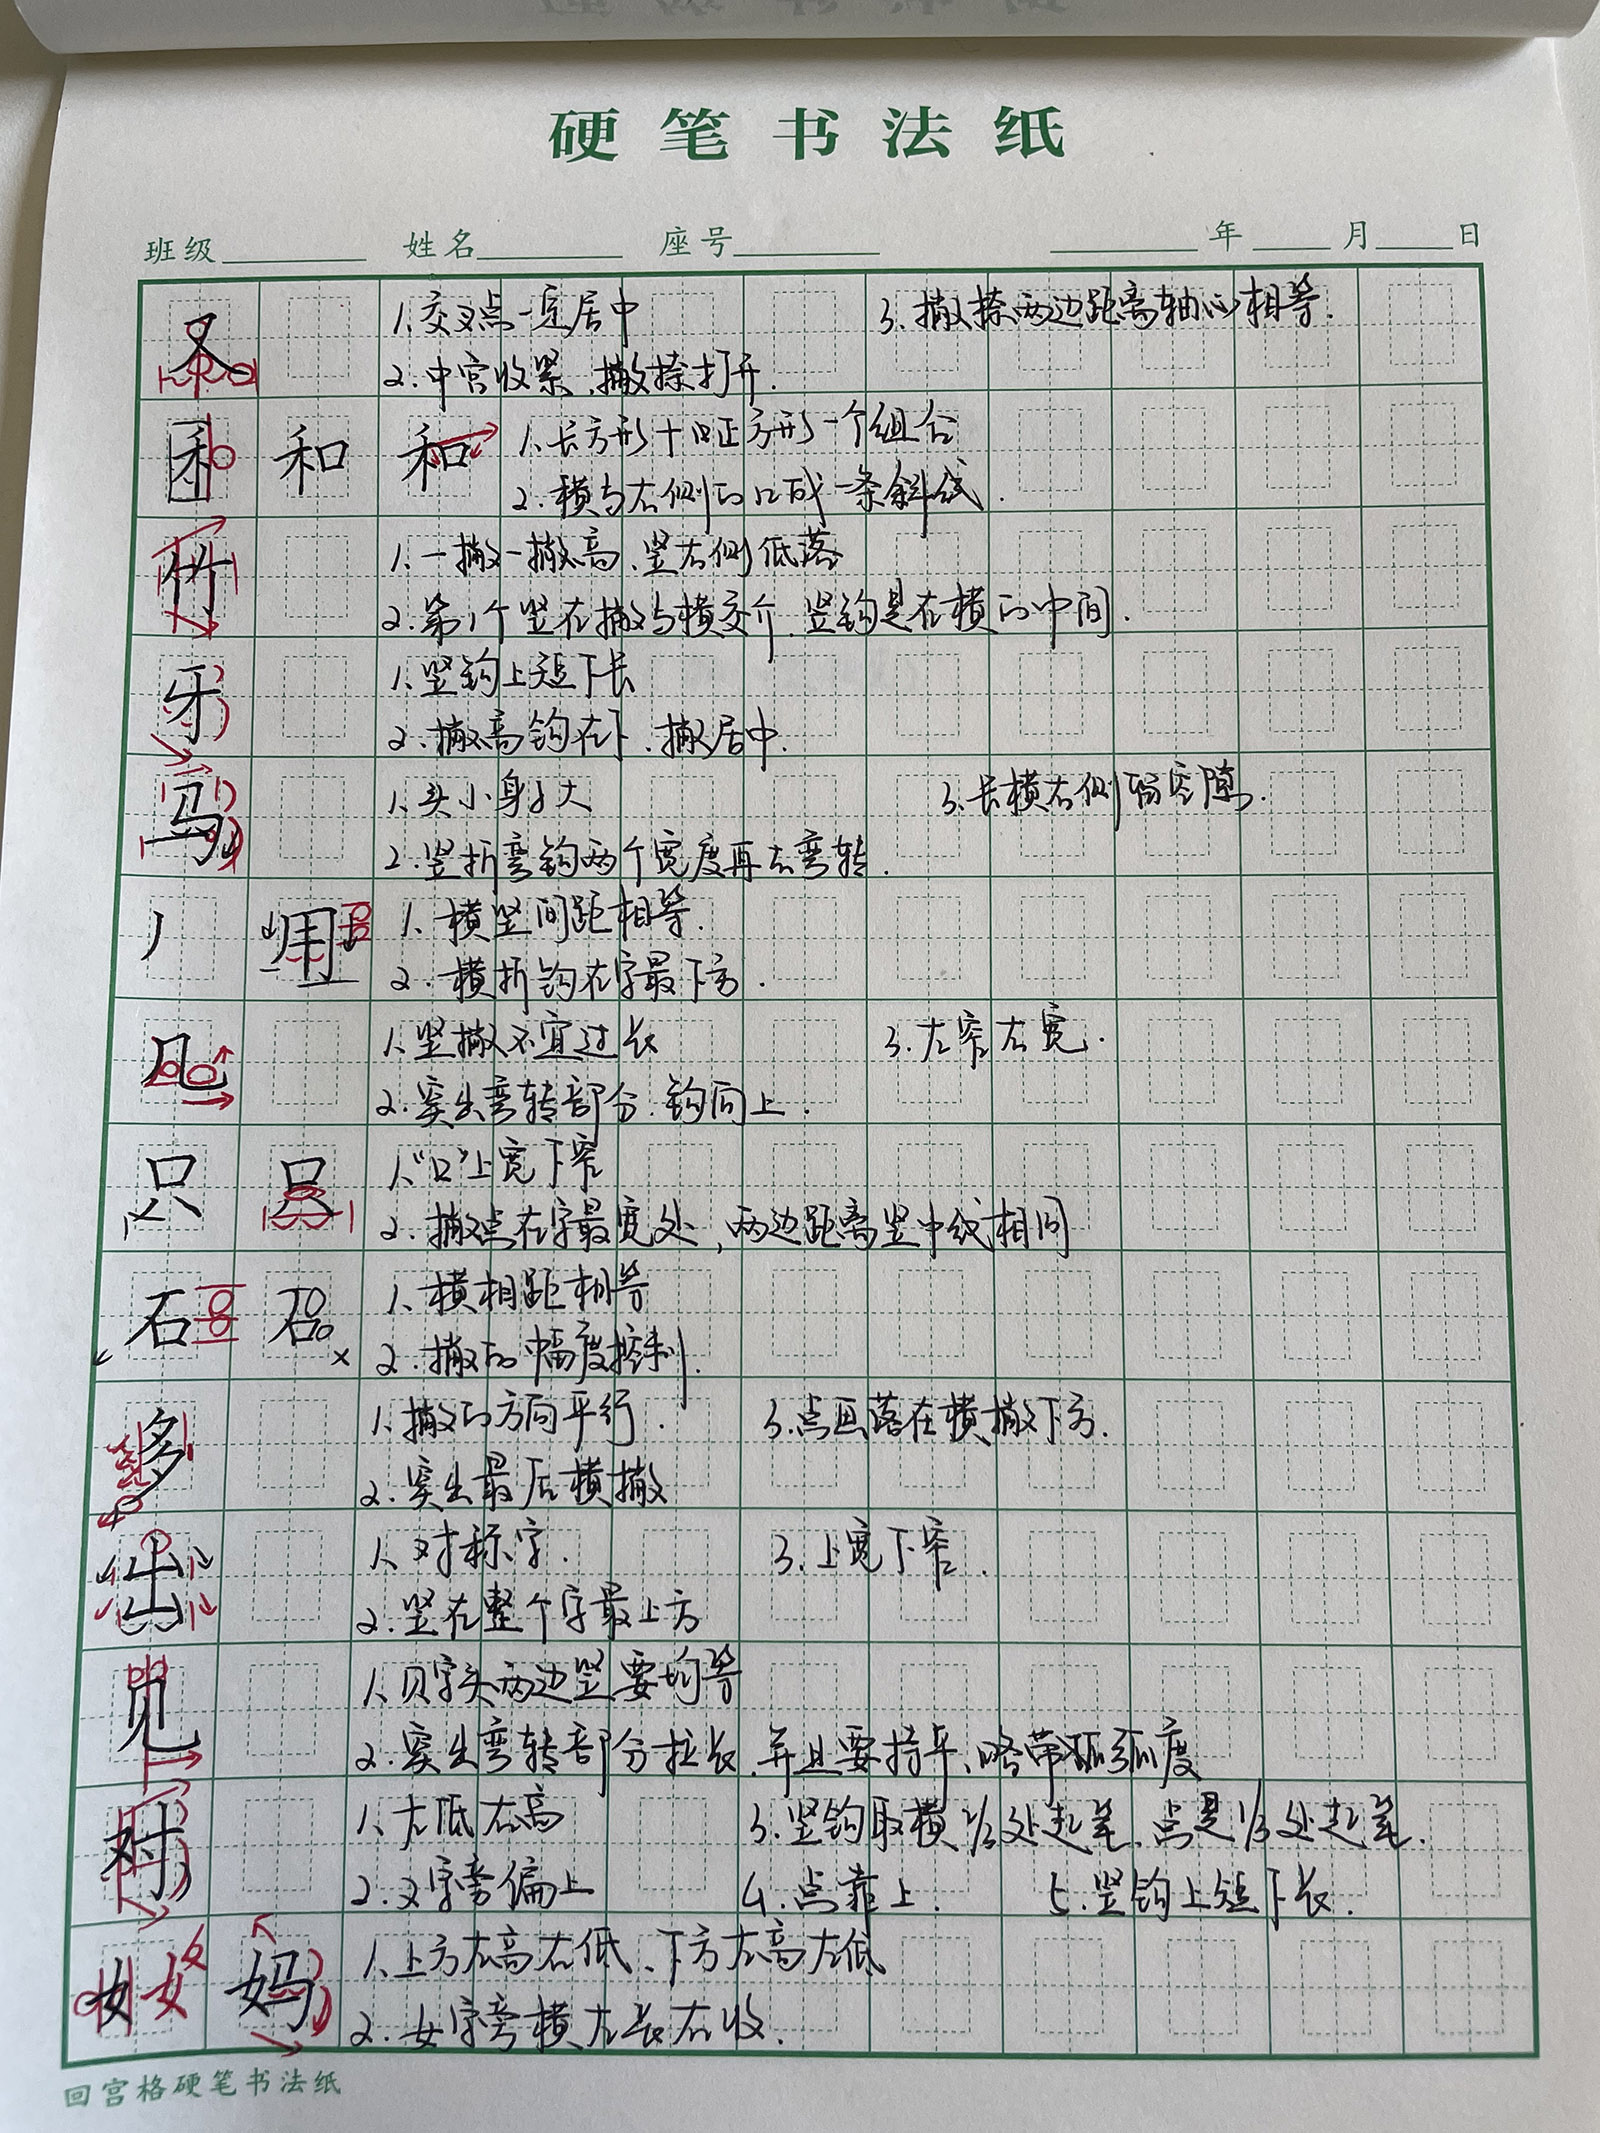 硬笔书法纸
班级 姓名 座号 年 月 日
又 1、交叉点一定居中 3、撇捺两边距离轴心相等.
2、中宫收紧、撇捺打开.
和 和 和 1、长方形+口正方形一个组合
2、横与右侧的口成一条斜线.
竹 1、一撇一撇高、竖右侧低落
2、第1个竖在撇与横交介、竖钩是在横的中间.
牙 1、竖钩上短下长
2、撇高钩在下、撇居中.
马 1、头小身子大 3、长横右侧留空隙.
2、竖折弯钩两个宽度再左弯转.
丿 用 1、横竖间距相等.
2、横折钩在字最下方.
几 1、竖撇不宜过长 3、左窄右宽.
2、突出弯转部分、钩向上.
只 只 1、“口”上宽下窄
2、撇点在字最宽处，两边距离竖中线相同
石 石 1、横相距相等
2、撇的幅度控制.
多 1、撇的方向平行. 3、点画落在横撇下方.
2、突出最后横撇
出 1、对称字. 3、上宽下窄.
2、竖在整个字最上方
见 1、贝字头两边竖要均等
2、突出弯转部分拉长、并且要持平、略带弧度
对 1、左低右高 3、竖钩取横2/3处起笔、点是1/3处起笔.
2、又字旁偏上 4、点靠上. 5、竖钩上短下长.
女 女 妈 1、上方左高右低、下方左高左低
2、女字旁横左长右收.
回宫格硬笔书法纸